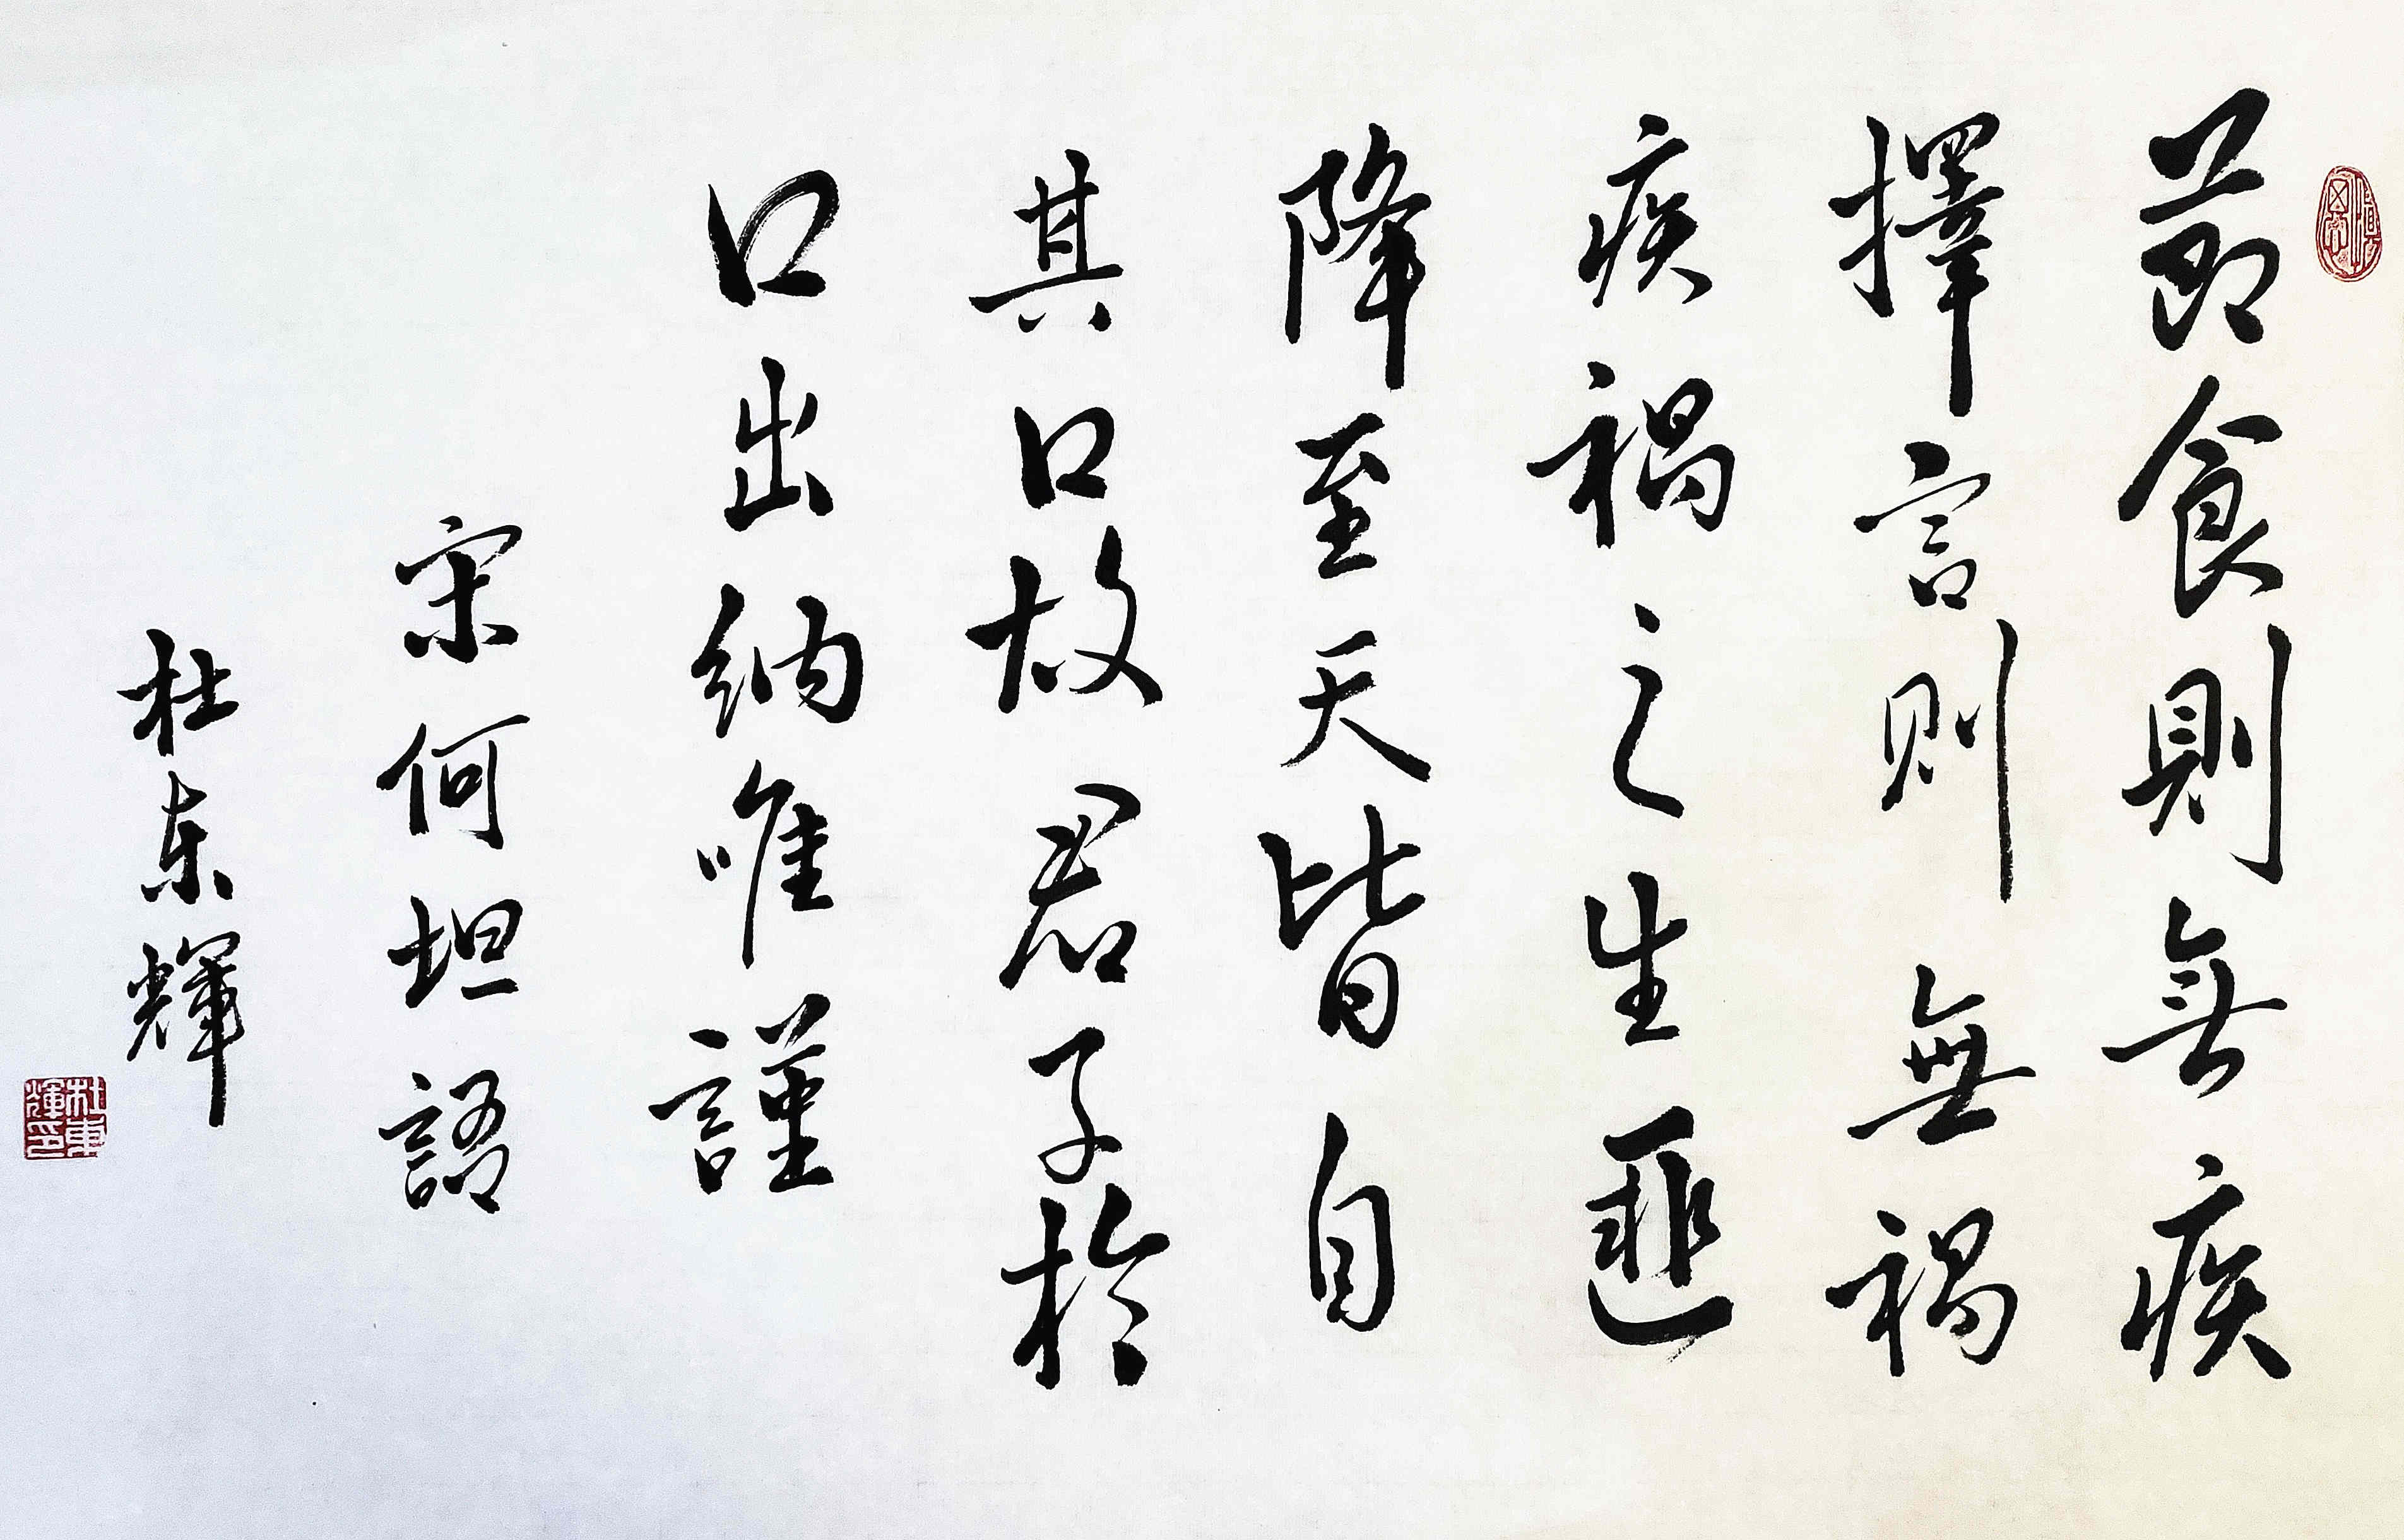 節食則無疾
擇言则無禍
疾禍之生匪
降至天皆自
其口故君子於
口出納唯謹
宋何坦語
杜东輝
杜東輝印